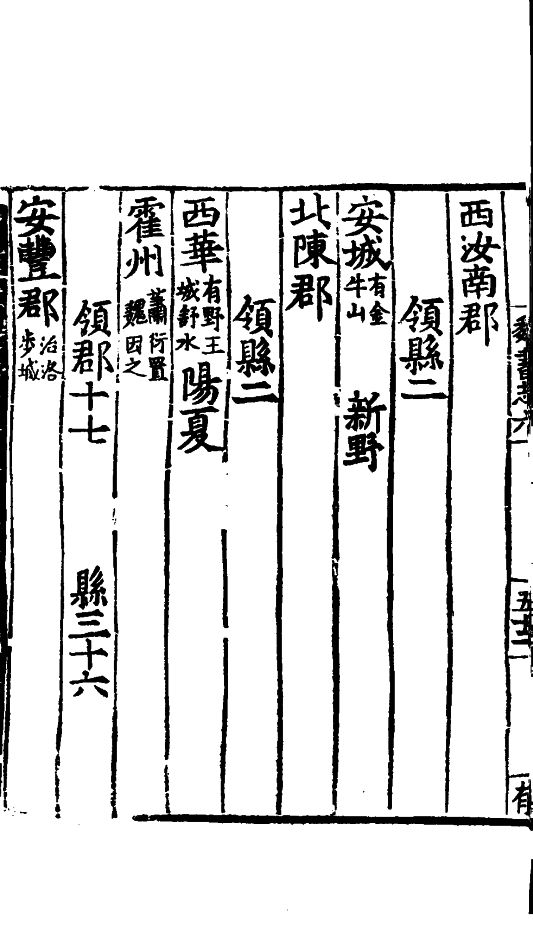 魏書志六
五十二
西汝南郡
領縣二
安城有金牛山 新野
北陳郡
領縣二
西華有野王城舒水 陽夏
霍州蕭衍置魏因之
領郡十七 縣三十六
安豐郡治洛步城